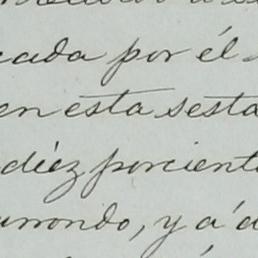 cada por él
en esta sesta
diéz porciento
urrondo, y á d